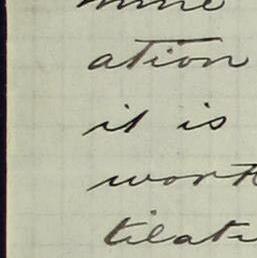 ation
it is
work
tilat